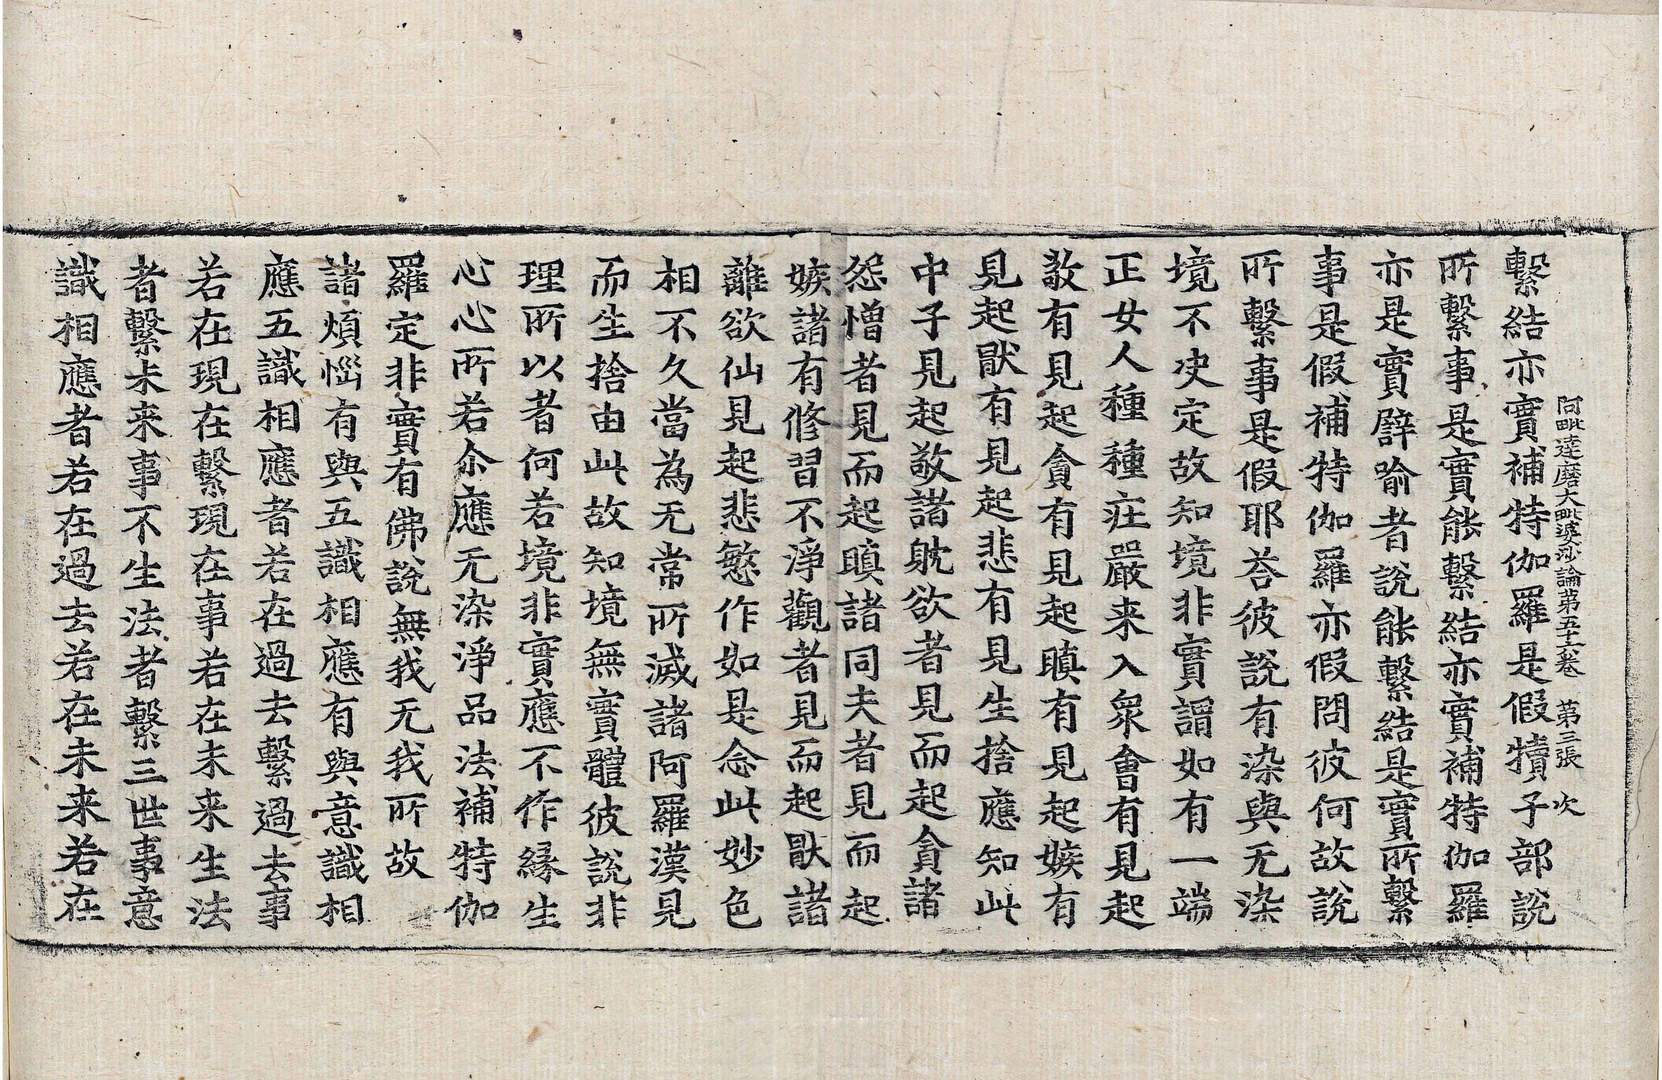 阿毗達磨大毗婆沙論第五十六卷　第三張　次
繫結亦實補特伽羅是假犢子部說
所繫事是實能繫結亦實補特伽羅
亦是實譬喻者說能繫結是實所繫
事是假補特伽羅亦假問彼何故說
所繫事是假耶荅彼說有染與无染
境不决定故知境非實謂如有一端
正女人種種莊嚴来入衆會有見起
敬有見起貪有見起瞋有見起嫉有
見起猒有見起悲有見生捨應知此
中子見起敬諸躭欲者見而起貪諸
怨憎者見而起瞋諸同夫者見而起
嫉諸有修習不淨觀者見而起猒諸
離欲仙見起悲愍作如是念此妙色
相不久當為无常所滅諸阿羅漢見
而生捨由此故知境無實體彼說非
理所以者何若境非實應不作縁生
心心所若尒應无染淨品法補特伽
羅定非實有佛說無我无我所故
諸煩惱有與五識相應有與意識相
應五識相應者若在過去繫過去事
若在現在繫現在事若在未来生法
者繫未来事不生法者繫三世事意
識相應者若在過去若在未来若在